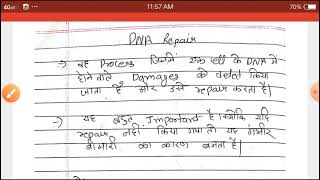 4G
11:57 AM
70%
DNA Repair
→ वह Process जिसमें एक cell के DNA में
होने वाले Damages को detect किया
जाता है और उसे repair करता है।
→ यह बहुत Important है। क्योंकि यदि
repair नहीं किया गया तो यह गंभीर
बीमारी का कारण बनता है।